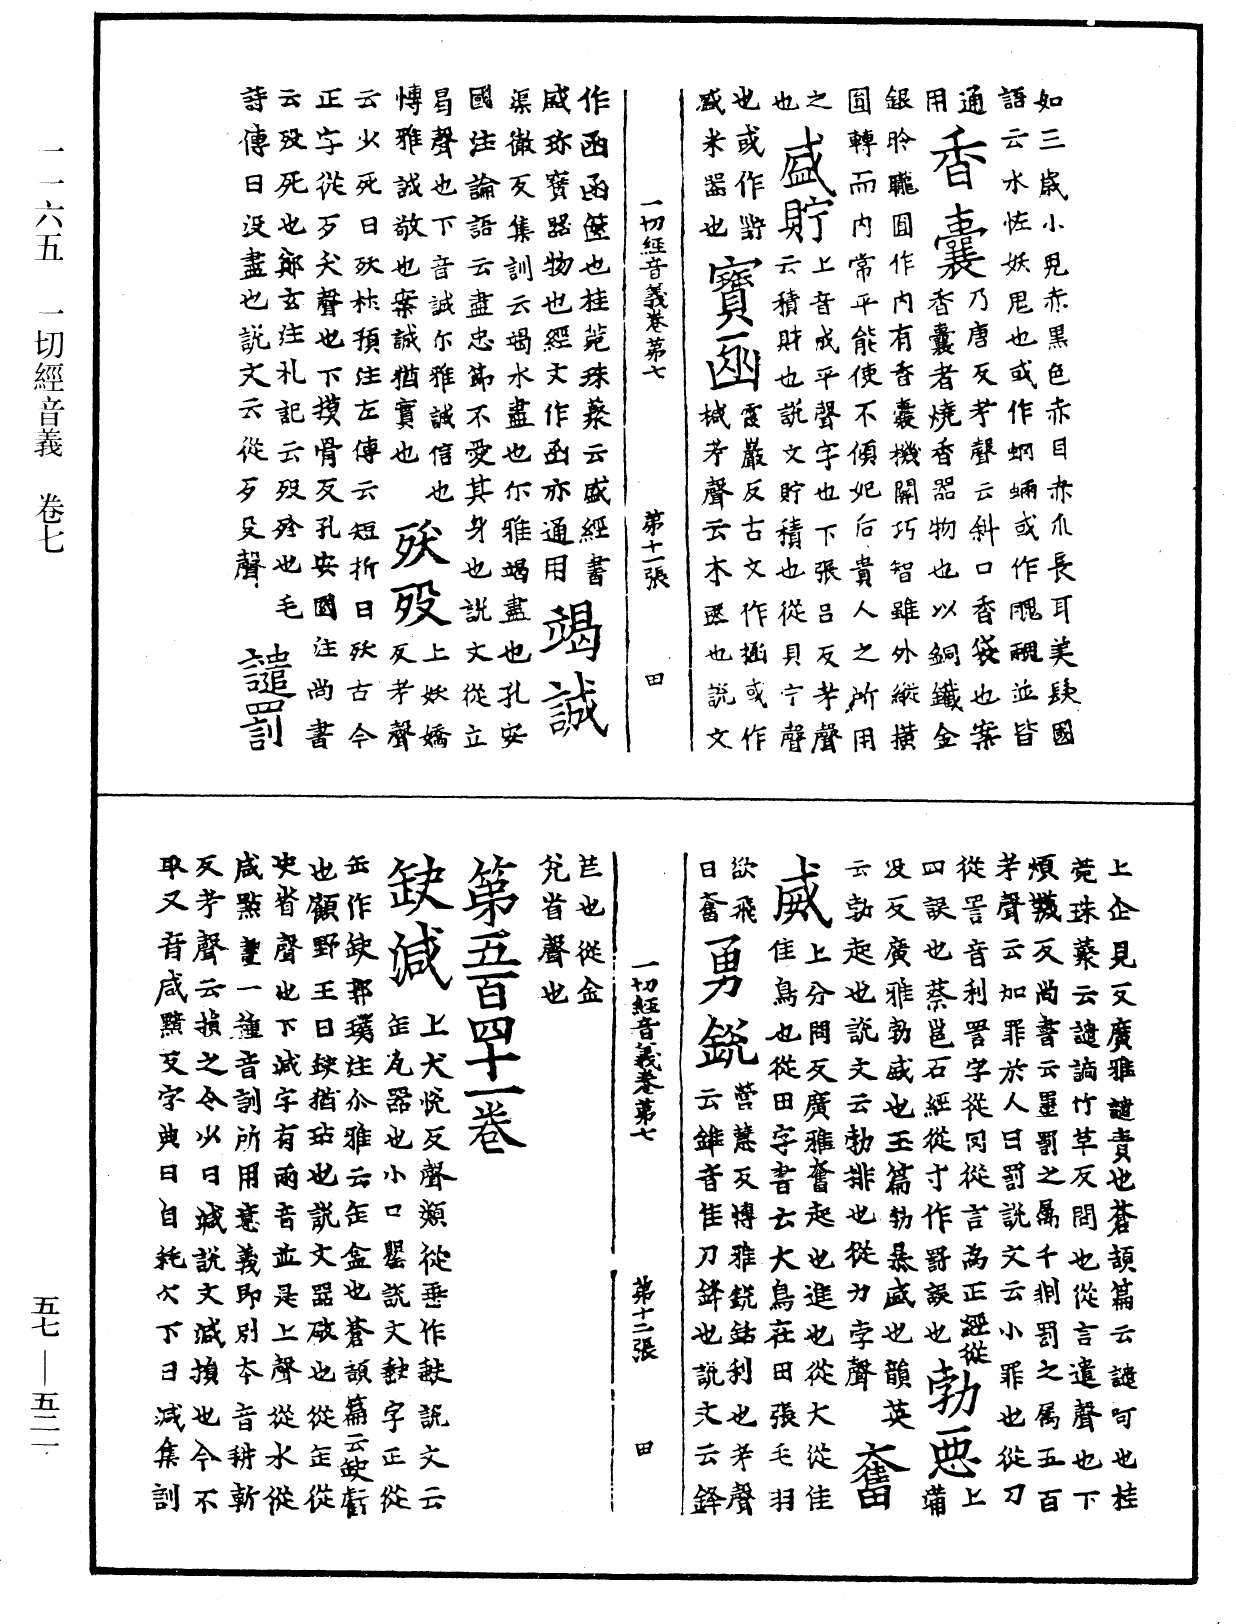 一一六五　一切經音義　卷七
如三歲小兒赤黑色赤目赤爪長耳美髮國
語云水恠妖鬼也或作蜽蝄或作魍魎並皆
通用
香囊
乃唐反考聲云斜口香袋也案
香囊者燒香器物也以銅鐵金
銀昤曨圓作內有香囊機關巧智雖外縱橫
圓轉而內常平能使不傾妃后貴人之所用
之也
盛貯
上音成平聲字也下張呂反考聲
云積財也說文貯積也從貝宁聲
也或作𧵍
寶函
霞巖反古文作㮀或作
械考聲云木匧也說文
盛米器也
一切經音義卷第七　第十一張　四
作函函篋也桂苑珠藂云盛經書
盛珎寶器物也經文作函亦通用
竭誠
渠徹反集訓云竭水盡也尒雅竭盡也孔安
國注論語云盡忠節不愛其身也說文從立
曷聲也下音誠尒雅誠信也
愽雅誠敬也案誠猶實也
殀歿
上妖嬌
反考聲
云少死曰殀杜預注左傳云短折曰殀古今
正字從歹夭聲也下摸骨反孔安國注尚書
云歿死也鄭玄注礼記云歿殄也毛
詩傳曰沒盡也說文云從歹𠬛聲
譴罰
上企見反廣雅譴責也蒼頡篇云譴呵也桂
菀珠藂云譴謫竹草反問也從言遣聲也下
煩韈反尚書云墨罰之属千剕罰之属五百
考聲云加罪於人曰罰說文云小罪也從刀
從詈音利詈字從冈從言為正經從
四誤也蔡邕石經從寸作罸誤也
勃惡
上蒲
沒反廣雅勃盛也玉篇勃暴盛也韻英
云勃起也說文云勃排也從力孛聲
奮
威
上分問反廣雅奮起也進也從大從隹
隹鳥也從田字書云大鳥在田張毛羽
欲飛
曰奮
勇銳
營慧反博雅銳銛利也考聲
云錐音隹刀鋒也說文云鋒
一切經音義卷第七　第十二張　四
芒也從金
兊省聲也
第五百四十一卷
缺減
上犬悅反聲類從垂作𡙇說文云
缶瓦器也小口罌說文𡙇字正從
缶作缺郭璞注尒雅云缶盆也蒼頡篇云缺虧
也顧野王曰鈌猶玷也說文器破也從缶從
夬省聲也下減字有兩音並是上聲從水從
咸點畫一種音訓所用意義即別本音耕斬
反考聲云損之令少曰減說文減損也今不
取又音咸黯反字典曰自耗欠下曰減集訓
五七—五二一